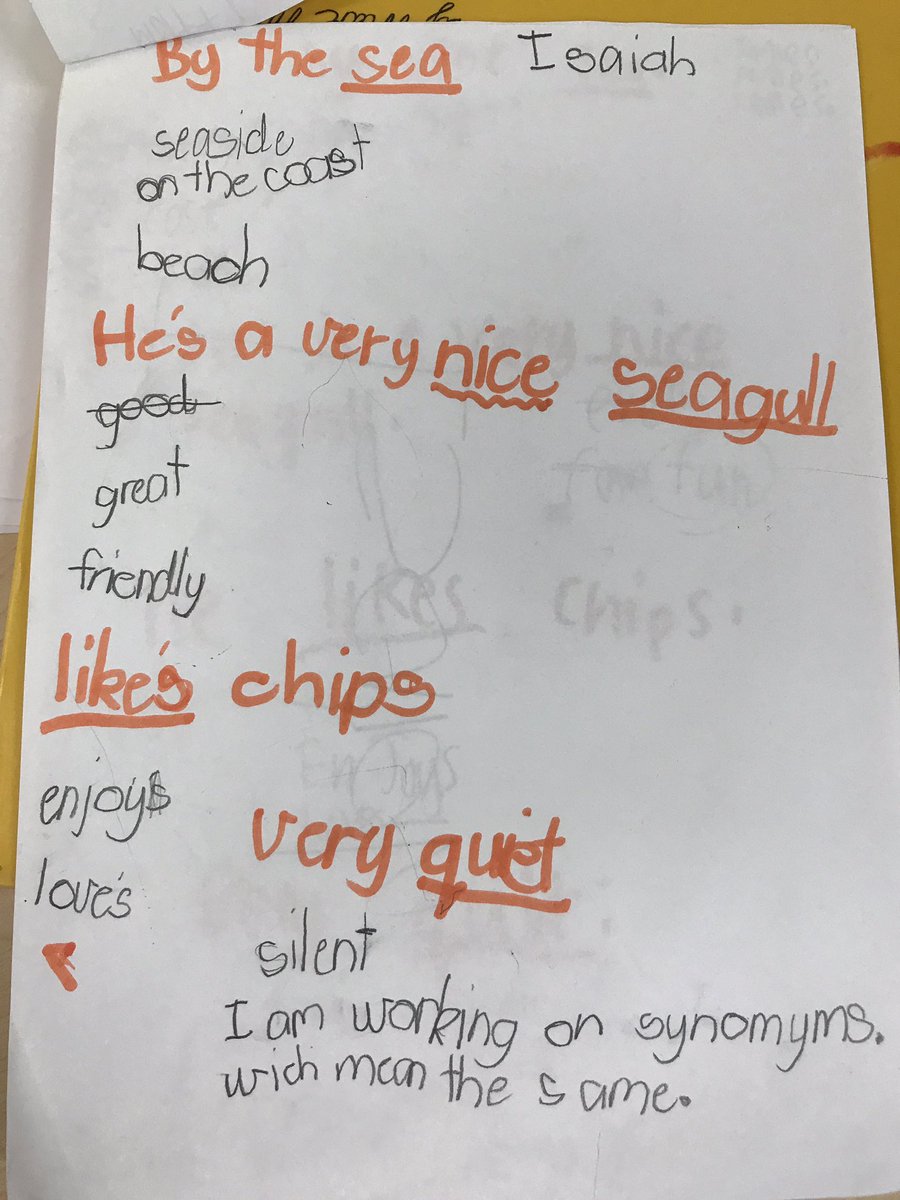 By the sea Isaiah
seaside
on the coast
beach
He's a very nice seagull
good
great
friendly
like's chips
enjoys
love's
very quiet
silent
I am working on synomyms.
wich mean the same.